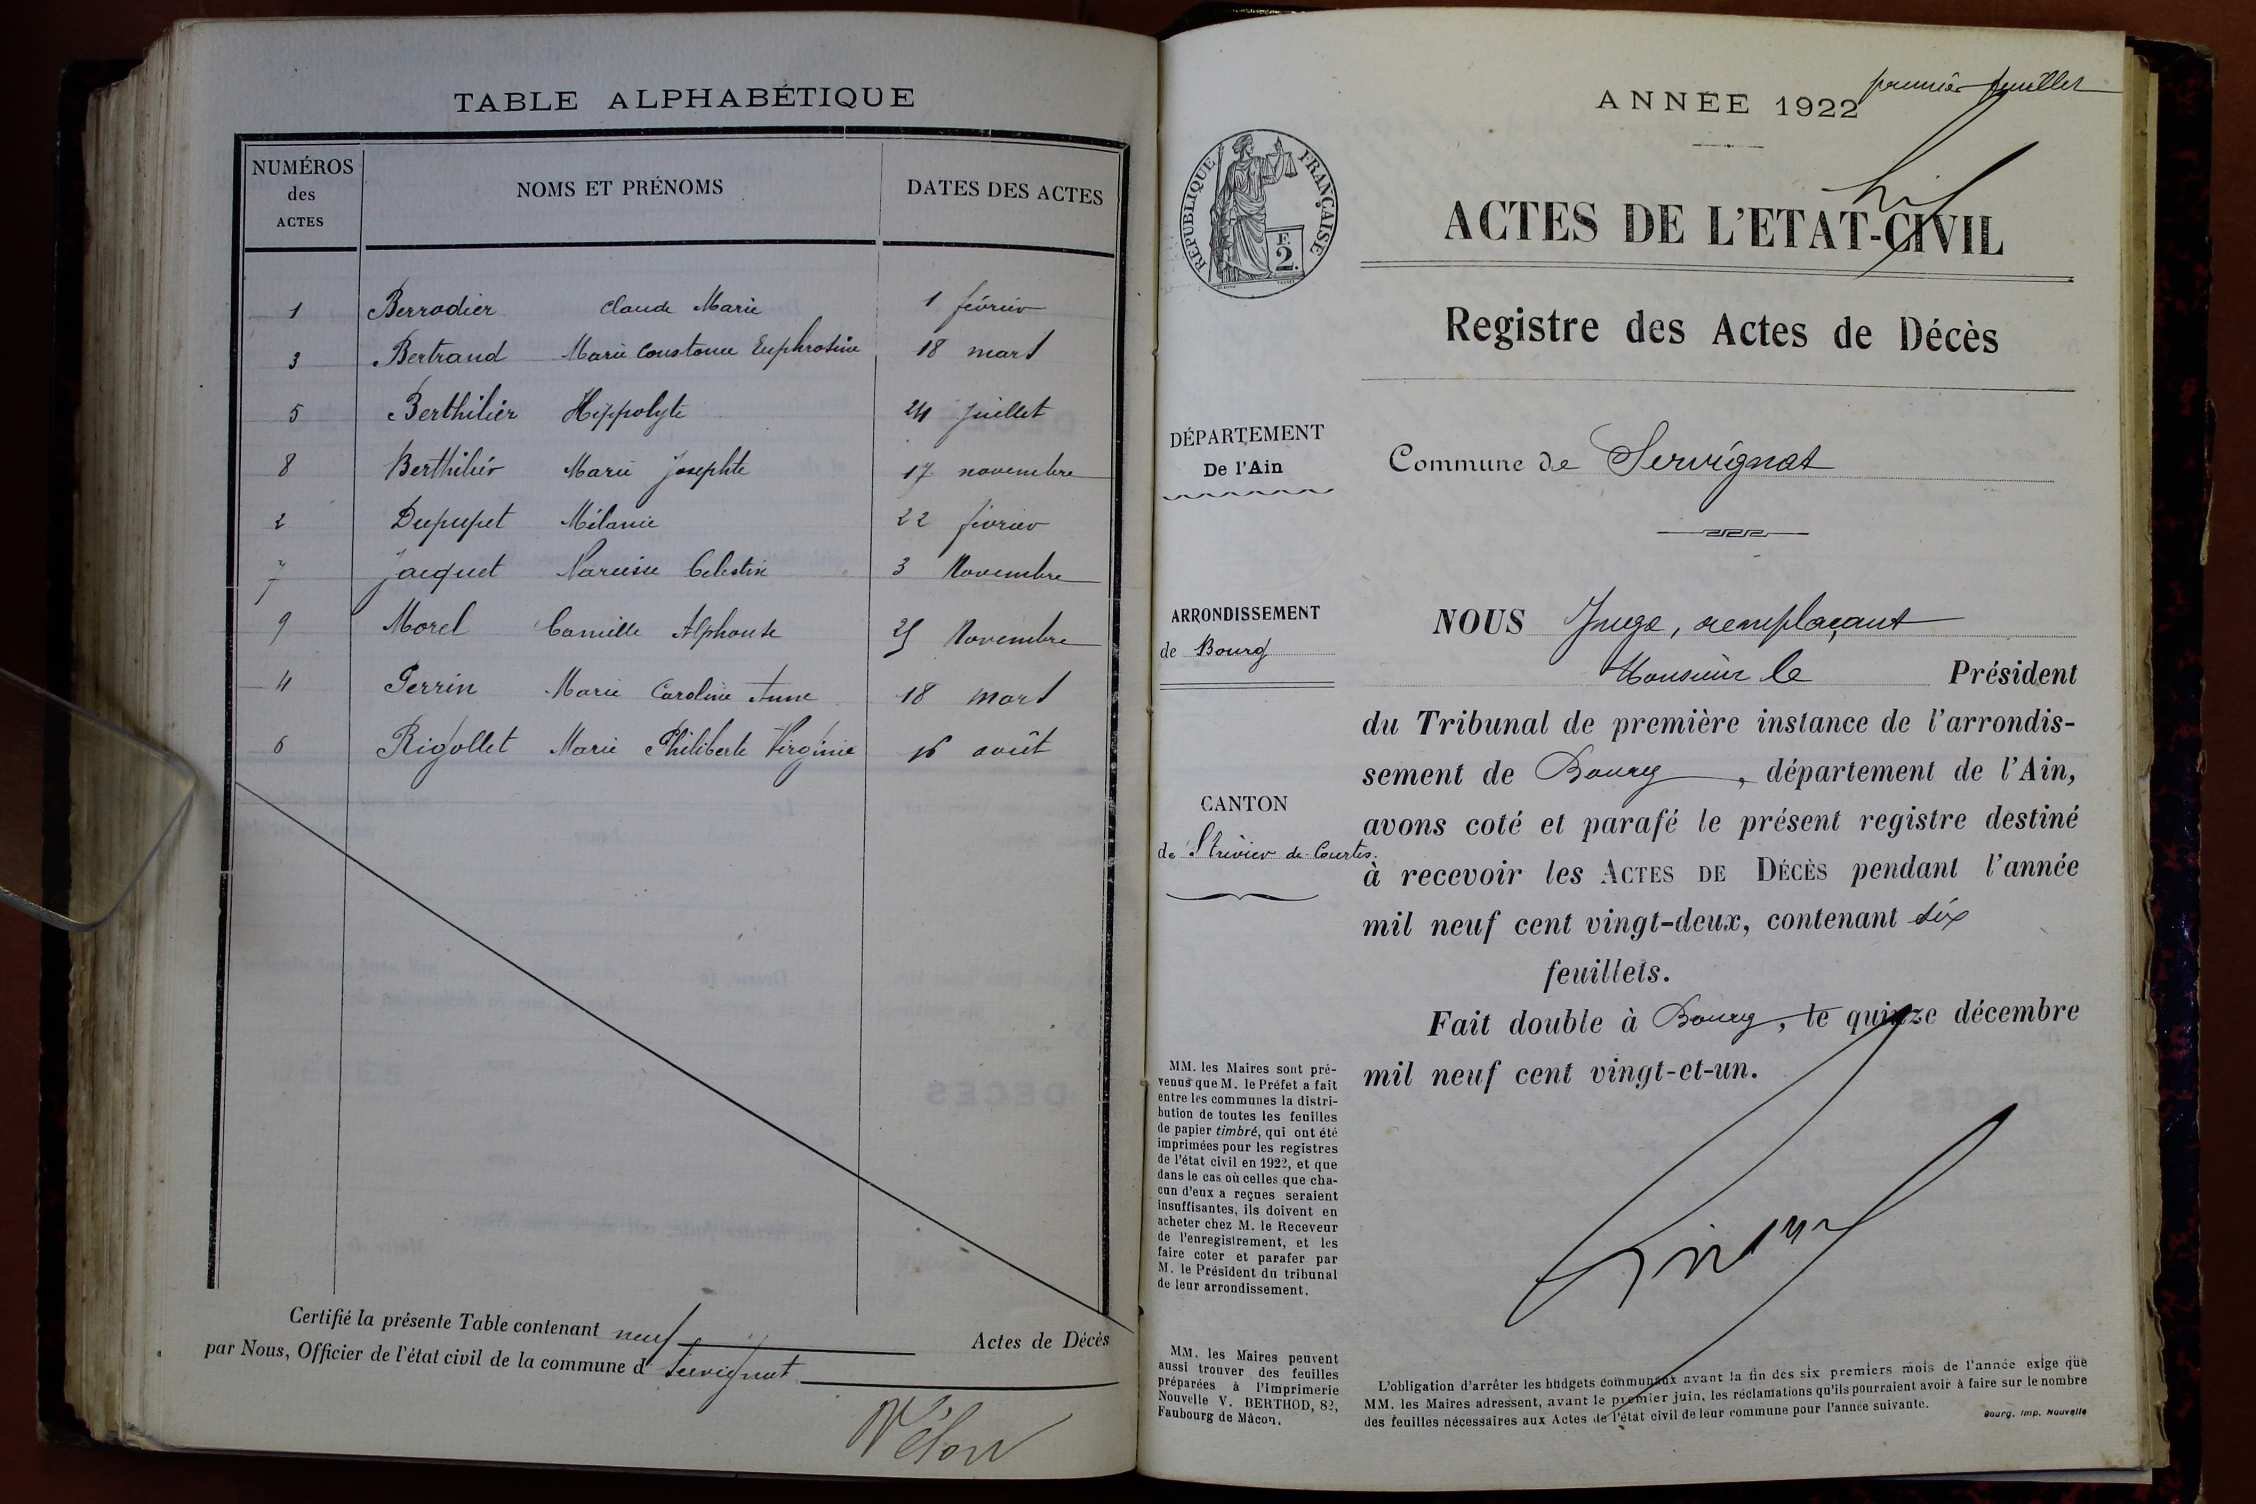 TABLE ALPHABÉTIQUE
NUMÉROS
des
ACTES
NOMS ET PRÉNOMS
DATES DES ACTES
1 Berrodier Claude Marie 1 février
3 Bertrand Marie Constance Euphrosine 18 mars
5 Berthilier Hippolyte 24 juillet
8 Berthilier Marie Josephte 17 novembre
2 Dupupet Mélanie 22 février
7 Jacquet Narcisse Celestin 3 Novembre
9 Morel Camille Alphonse 25 Novembre
4 Perrin Marie Caroline Anne 18 mars
6 Rigollet Marie Philiberte Virginie 16 août
Certifié la présente Table contenant neuf Actes de Décès
par Nous, Officier de l'état civil de la commune d Servignat
premier feuillet
ANNÉE 1922
RÉPUBLIQUE FRANÇAISE
F.
2.
ACTES DE L'ETAT-CIVIL
Registre des Actes de Décès
DÉPARTEMENT
De l'Ain
Commune de Servignat
ARRONDISSEMENT
de Bourg
CANTON
de St Trivier de Courtes.
NOUS Juge, remplaçant
Monsieur le Président
du Tribunal de première instance de l'arrondis-
sement de Bourg, département de l'Ain,
avons coté et parafé le présent registre destiné
à recevoir les ACTES DE DÉCÈS pendant l'année
mil neuf cent vingt-deux, contenant six
feuillets.
Fait double à Bourg, le quinze décembre
mil neuf cent vingt-et-un.
MM. les Maires sont pré-
venus que M. le Préfet a fait
entre les communes la distri-
bution de toutes les feuilles
de papier timbré, qui ont été
imprimées pour les registres
de l'état civil en 1922, et que
dans le cas où celles que cha-
cun d'eux a reçues seraient
insuffisantes, ils doivent en
acheter chez M. le Receveur
de l'enregistrement, et les
faire coter et parafer par
M. le Président du tribunal
de leur arrondissement.
MM. les Maires peuvent
aussi trouver des feuilles
préparées à l'Imprimerie
Nouvelle V. BERTHOD, 82,
Faubourg de Mâcon.
L'obligation d'arrêter les budgets communaux avant la fin des six premiers mois de l'année exige que
MM. les Maires adressent, avant le premier juin, les réclamations qu'ils pourraient avoir à faire sur le nombre
des feuilles nécessaires aux Actes de l'état civil de leur commune pour l'année suivante.
Bourg. Imp. Nouvelle